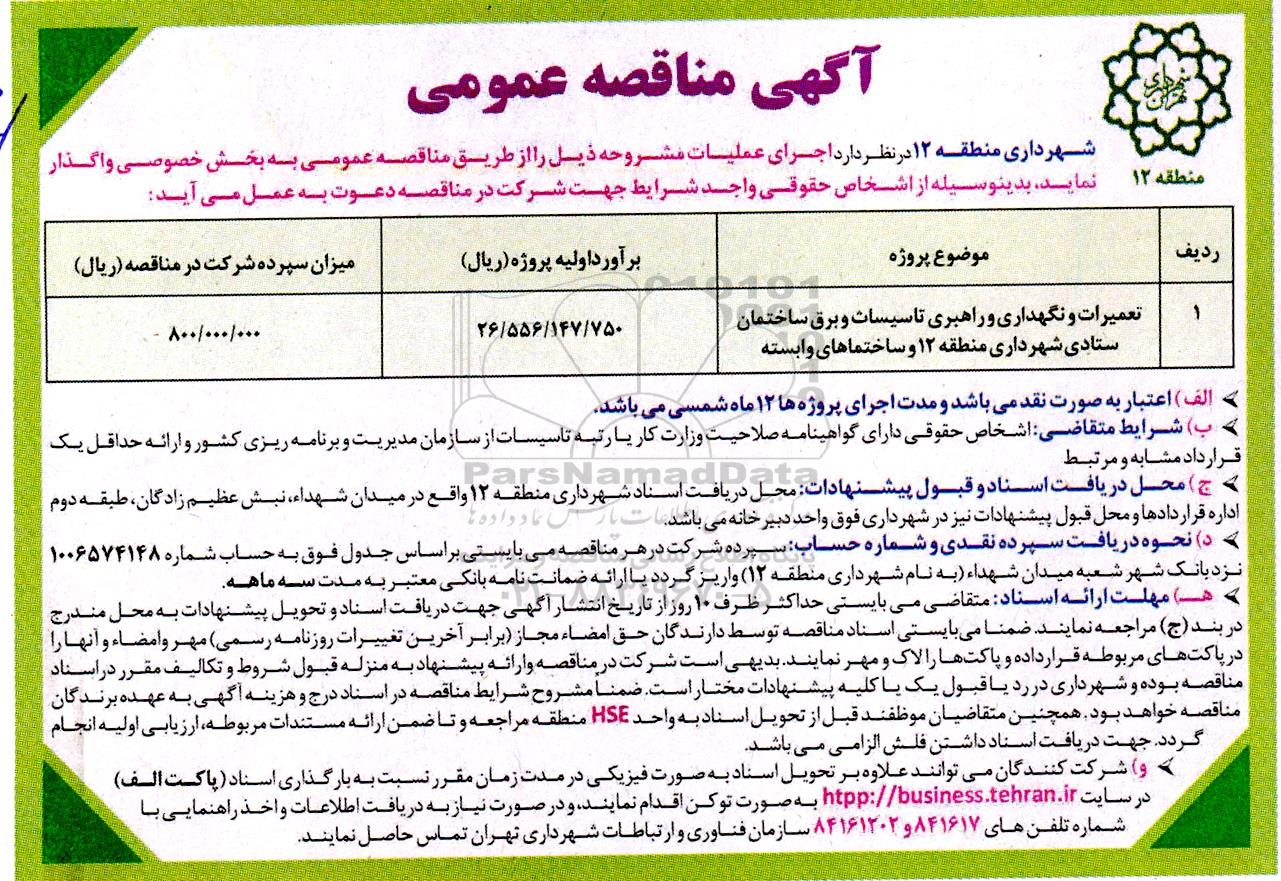 آگهی مناقصه عمومی
شهرداری تهران
منطقه ۱۲
شهرداری منطقه ۱۲ در نظر دارد اجرای عملیات مشروحه ذیل را از طریق مناقصه عمومی به بخش خصوصی واگذار
نماید، بدینوسیله از اشخاص حقوقی واجد شرایط جهت شرکت در مناقصه دعوت به عمل می آید:
ردیف موضوع پروژه برآورد اولیه پروژه (ریال) میزان سپرده شرکت در مناقصه (ریال)
۱ تعمیرات و نگهداری و راهبری تاسیسات و برق ساختمان ۲۶/۵۵۶/۱۴۷/۷۵۰ ۸۰۰/۰۰۰/۰۰۰
ستادی شهرداری منطقه ۱۲ و ساختماهای وابسته
الف) اعتبار به صورت نقد می باشد و مدت اجرای پروژه ها ۱۲ ماه شمسی می باشد.
ب) شرایط متقاضی: اشخاص حقوقی دارای گواهینامه صلاحیت وزارت کار یا رتبه تاسیسات از سازمان مدیریت و برنامه ریزی کشور و ارائه حداقل یک
قرارداد مشابه و مرتبط
ج) محل دریافت اسناد و قبول پیشنهادات: محل دریافت اسناد شهرداری منطقه ۱۲ واقع در میدان شهداء، نبش عظیم زادگان، طبقه دوم
اداره قراردادها و محل قبول پیشنهادات نیز در شهرداری فوق واحد دبیرخانه می باشد.
د) نحوه دریافت سپرده نقدی و شماره حساب: سپرده شرکت در هر مناقصه می بایستی بر اساس جدول فوق به حساب شماره ۱۰۰۶۵۷۴۱۴۸
نزد بانک شهر شعبه میدان شهداء (به نام شهرداری منطقه ۱۲) واریز گردد یا ارائه ضمانت نامه بانکی معتبر به مدت سه ماهه.
هـ) مهلت ارائه اسناد: متقاضی می بایستی حداکثر ظرف ۱۰ روز از تاریخ انتشار آگهی جهت دریافت اسناد و تحویل پیشنهادات به محل مندرج
در بند (ج) مراجعه نمایند. ضمنا می بایستی اسناد مناقصه توسط دارندگان حق امضاء مجاز (برابر آخرین تغییرات روزنامه رسمی) مهر و امضاء و آنها را
در پاکت‌های مربوطه قرار داده و پاکت‌ها را لاک و مهر نمایند. بدیهی است شرکت در مناقصه و ارائه پیشنهاد به منزله قبول شروط و تکالیف مقرر در اسناد
مناقصه بوده و شهرداری در رد یا قبول یک یا کلیه پیشنهادات مختار است. ضمناً مشروح شرایط مناقصه در اسناد درج و هزینه آگهی به عهده برندگان
مناقصه خواهد بود. همچنین متقاضیان موظفند قبل از تحویل اسناد به واحد HSE منطقه مراجعه و تا ضمن ارائه مستندات مربوطه، ارزیابی اولیه انجام
گردد. جهت دریافت اسناد داشتن فلش الزامی می باشد.
و) شرکت کنندگان می توانند علاوه بر تحویل اسناد به صورت فیزیکی در مدت زمان مقرر نسبت به بارگذاری اسناد (پاکت الف)
در سایت htpp://business.tehran.ir به صورت توکن اقدام نمایند، و در صورت نیاز به دریافت اطلاعات و اخذ راهنمایی با
شماره تلفن های ۸۴۱۶۱۷ و ۸۴۱۶۱۲۰۲ سازمان فناوری و ارتباطات شهرداری تهران تماس حاصل نمایند.
ParsNamadData